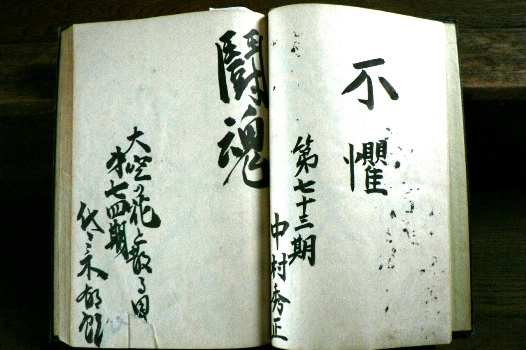 不懼
第七十三期
中村秀正
闘魂
大空の花と散る日
第七四期
代々木